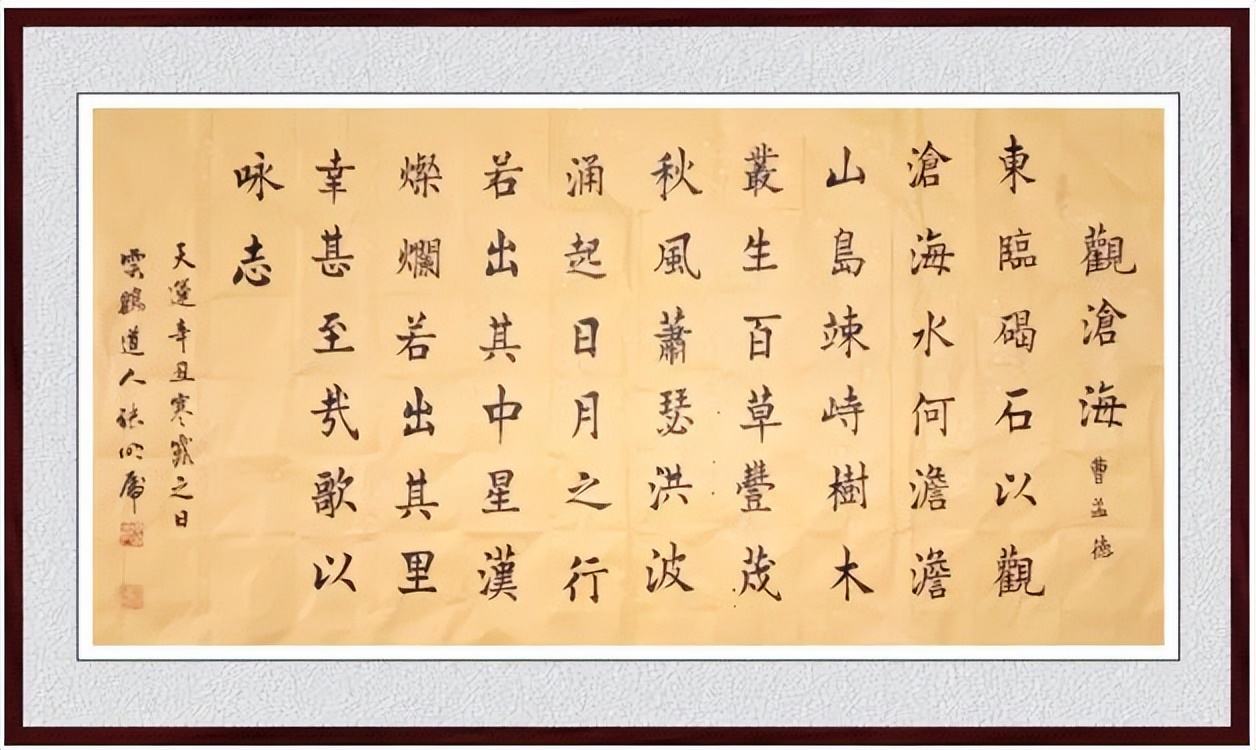 觀滄海 曹孟德
東臨碣石以觀
滄海水何澹澹
山島竦峙樹木
叢生百草豐茂
秋風蕭瑟洪波
涌起日月之行
若出其中星漢
燦爛若出其里
幸甚至哉歌以
咏志
天運辛丑寒戝之日
雲鶴道人